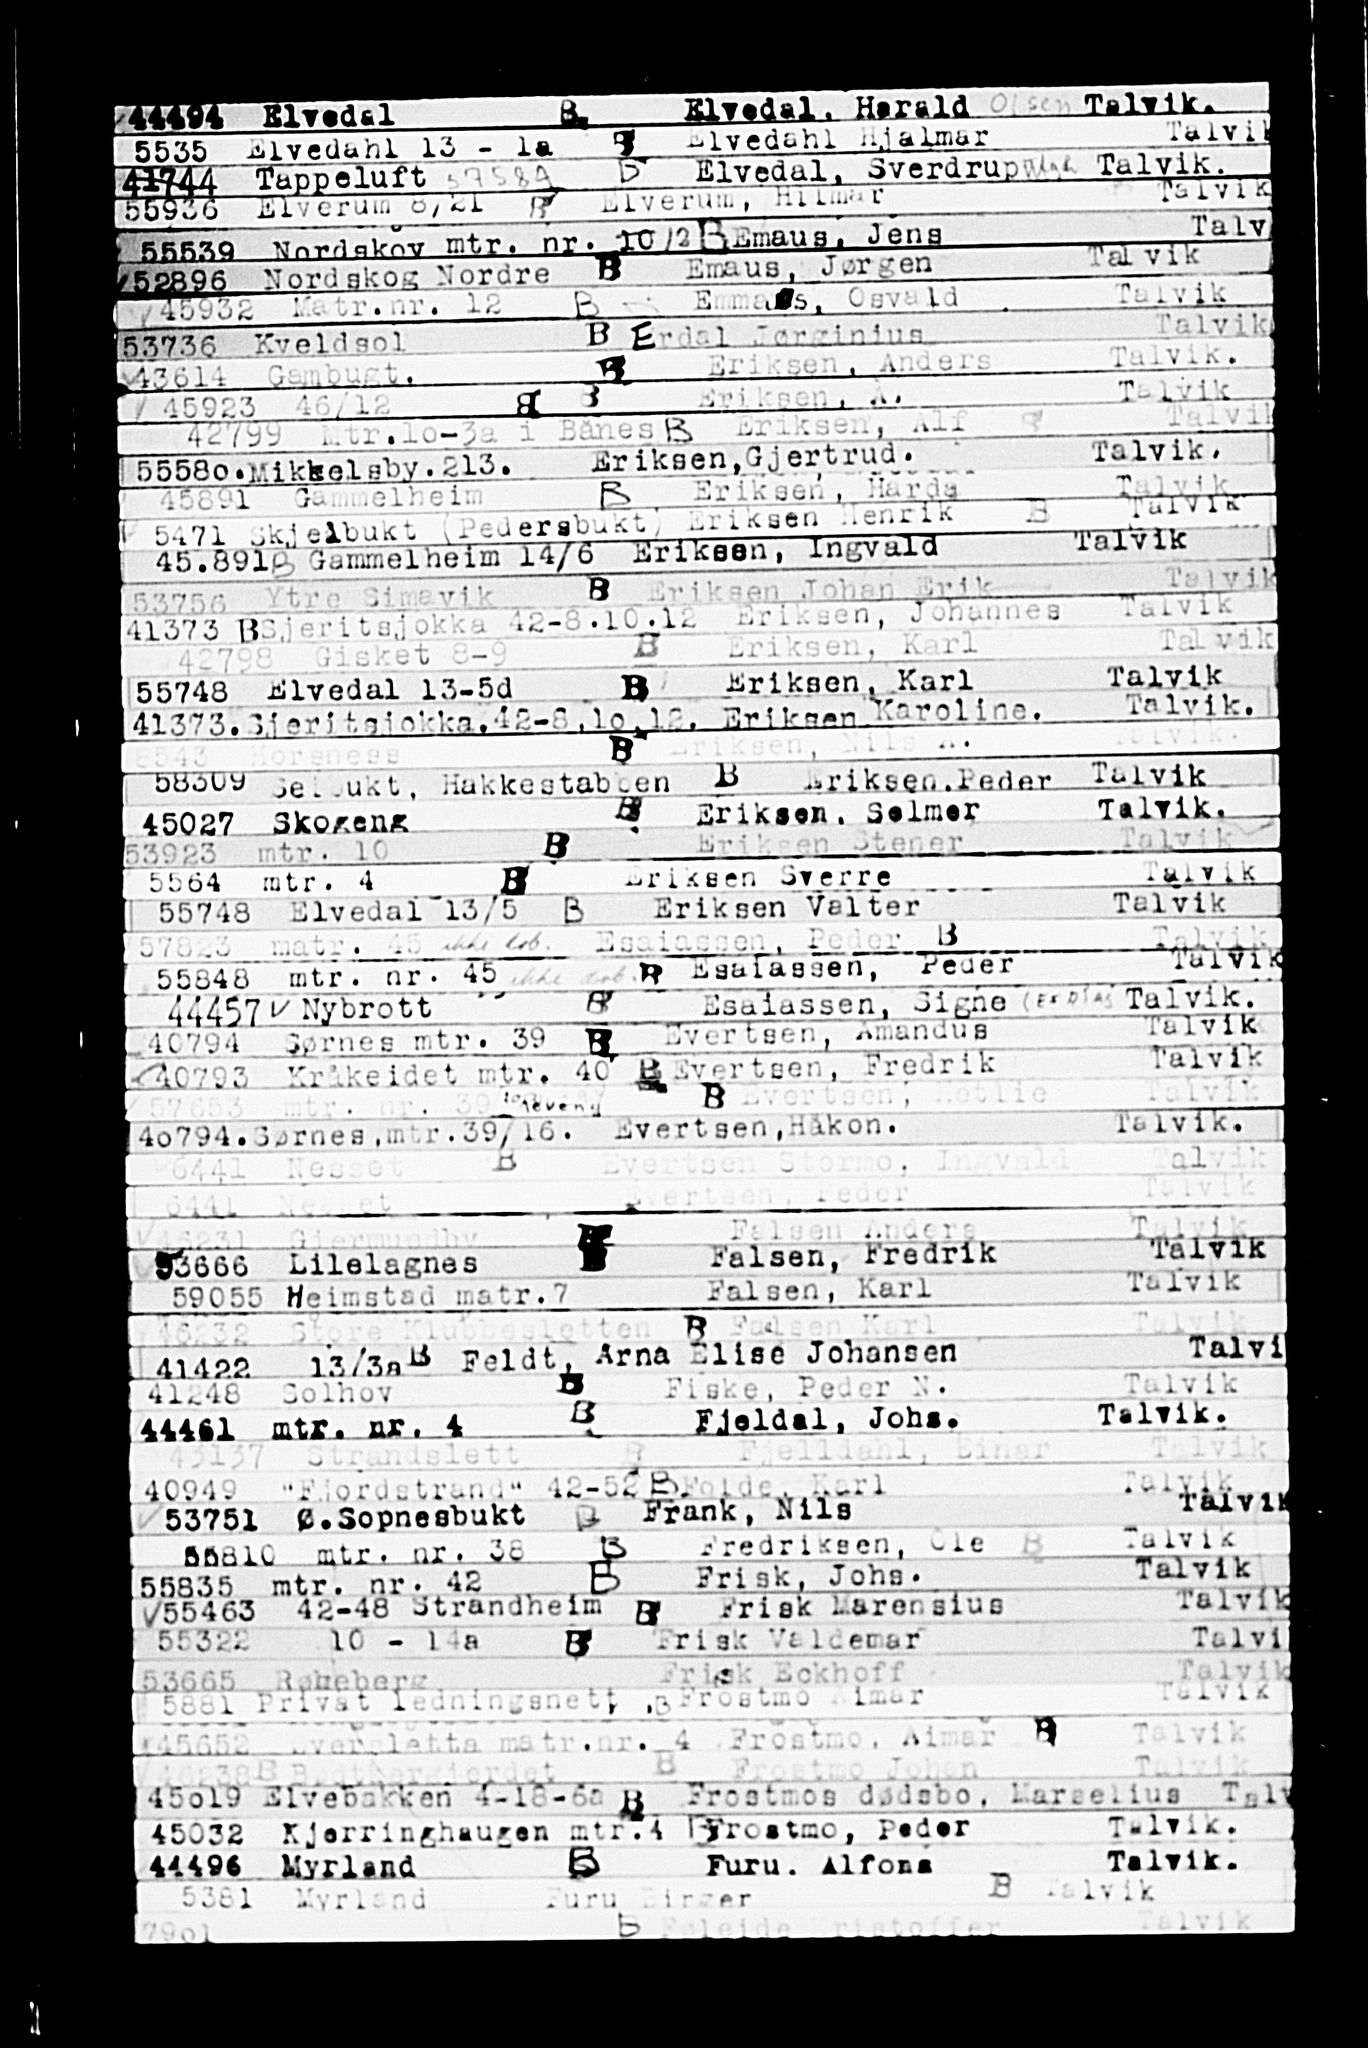 44494 Elvedal B. Elvedal, Harald Olsen Talvik.
5535 Elvedahl 13 - 1a B Elvedahl Hjalmar Talvik
41744 Tappeluft 57589 B Elvedal, Sverdrup Talvik.
55936 Elverum 8/21 B Elverum, Hilmar Talvik
55539 Nordskov mtr. nr. 10/2 B Emaus, Jens Talv
52896 Nordskog Nordre B Emaus, Jørgen Talvik
45932 Matr.nr. 12 B Emmaus, Osvald Talvik
53736 Kveldsol B Erdal Jørginius Talvik
43614 Gambugt. B Eriksen, Anders Talvik.
45923 46/12 B B Eriksen, A. Talvik
42799 Mtr.lo-3a i Bånes B Eriksen, Alf Talvik
5558o.Mikkelsby.213. Eriksen,Gjertrud. Talvik.
45891 Gammelheim B Eriksen, Harda Talvik
5471 Skjelbukt (Pedersbukt) Eriksen Henrik B Talvik
45.891 B Gammelheim 14/6 Eriksen, Ingvald Talvik
53756 Ytre Simavik B Eriksen Johan Erik Talvik
41373 B Sjeritsjokka 42-8.10.12 Eriksen, Johannes Talvik
42798 Gisket 8-9 B Eriksen, Karl Talvik
55748 Elvedal 13-5d B Eriksen, Karl Talvik
41373.Sjeritsjokka.42-8.lo.12. Eriksen Karoline. Talvik.
8543 Horsness B Eriksen, Nils A. Talvik.
58309 Selbukt, Hakkestabben B Eriksen.Peder Talvik
45027 Skogeng B Eriksen. Selmer Talvik.
53923 mtr. 10 B Eriksen Stener Talvik
5564 mtr. 4 B Eriksen Sverre Talvik
55748 Elvedal 13/5 B Eriksen Valter Talvik
57823 matr. 45 ikke tob. Esaiassen, Peder B Talvik
55848 mtr. nr. 45 ikke B Esaiassen, Peder Talvik
44457 v Nybrott B Esaiassen, Signe Talvik.
40794 Sørnes mtr. 39 B Evertsen, Amandus Talvik
40793 Kråkeidet mtr. 40 B Evertsen, Fredrik Talvik
57653 mtr. nr. 39 B Evertsen, Talvik
4o794.Sørnes,mtr.39/16. Evertsen,Håkon. Talvik.
6441 Nesset B Evertsen Stormo, Ingvald Talvik
6441 Nesset Evertsen, Peder Talvik
46231 Gjermundby B Falsen Anders Talvik
53666 Lilelagnes B Falsen, Fredrik Talvik
59055 Heimstad matr.7 Falsen, Karl Talvik
46232 Store Klubbesletten B Falsen Karl Talvik
41422 13/3a B Feldt, Arna Elise Johansen Talvi
41248 Solhov B Fiske, Peder N. Talvik
44461 mtr. nr. 4 B Fjeldal, Johs. Talvik.
43137 Strandslett B Fjelldahl, Einar Talvik
40949 "Fjordstrand" 42-52 B Folde, Karl Talvik
53751 Ø.Sopnesbukt B Frank, Nils Talvik
55810 mtr. nr. 38 B Fredriksen, Ole B Talvik
55835 mtr. nr. 42 B Frisk, Johs. Talvik
55463 42-48 Strandheim B Frisk Marensius Talvik
55322 10 - 14a B Frisk Valdemar Talvi
53665 Frisk Eckhoff Talvik
5881 Privat ledningsnett, B Frostmo Aimar Talvik
45652 matr.nr. 4 Frostmo, Aimar B Talvik
46238 B B Frostmo Johan Talvik
45o19 Elvebakken 4-18-6a B Frostmos dødsbo, Marselius Talv
45032 Kjerringhaugen mtr.4 B Frostmo, Peder Talvik.
44496 Myrland B Furu. Alfons Talvik.
5381 Myrland Furu Birger B Talvik
79o1 B Kristoffer Talvik